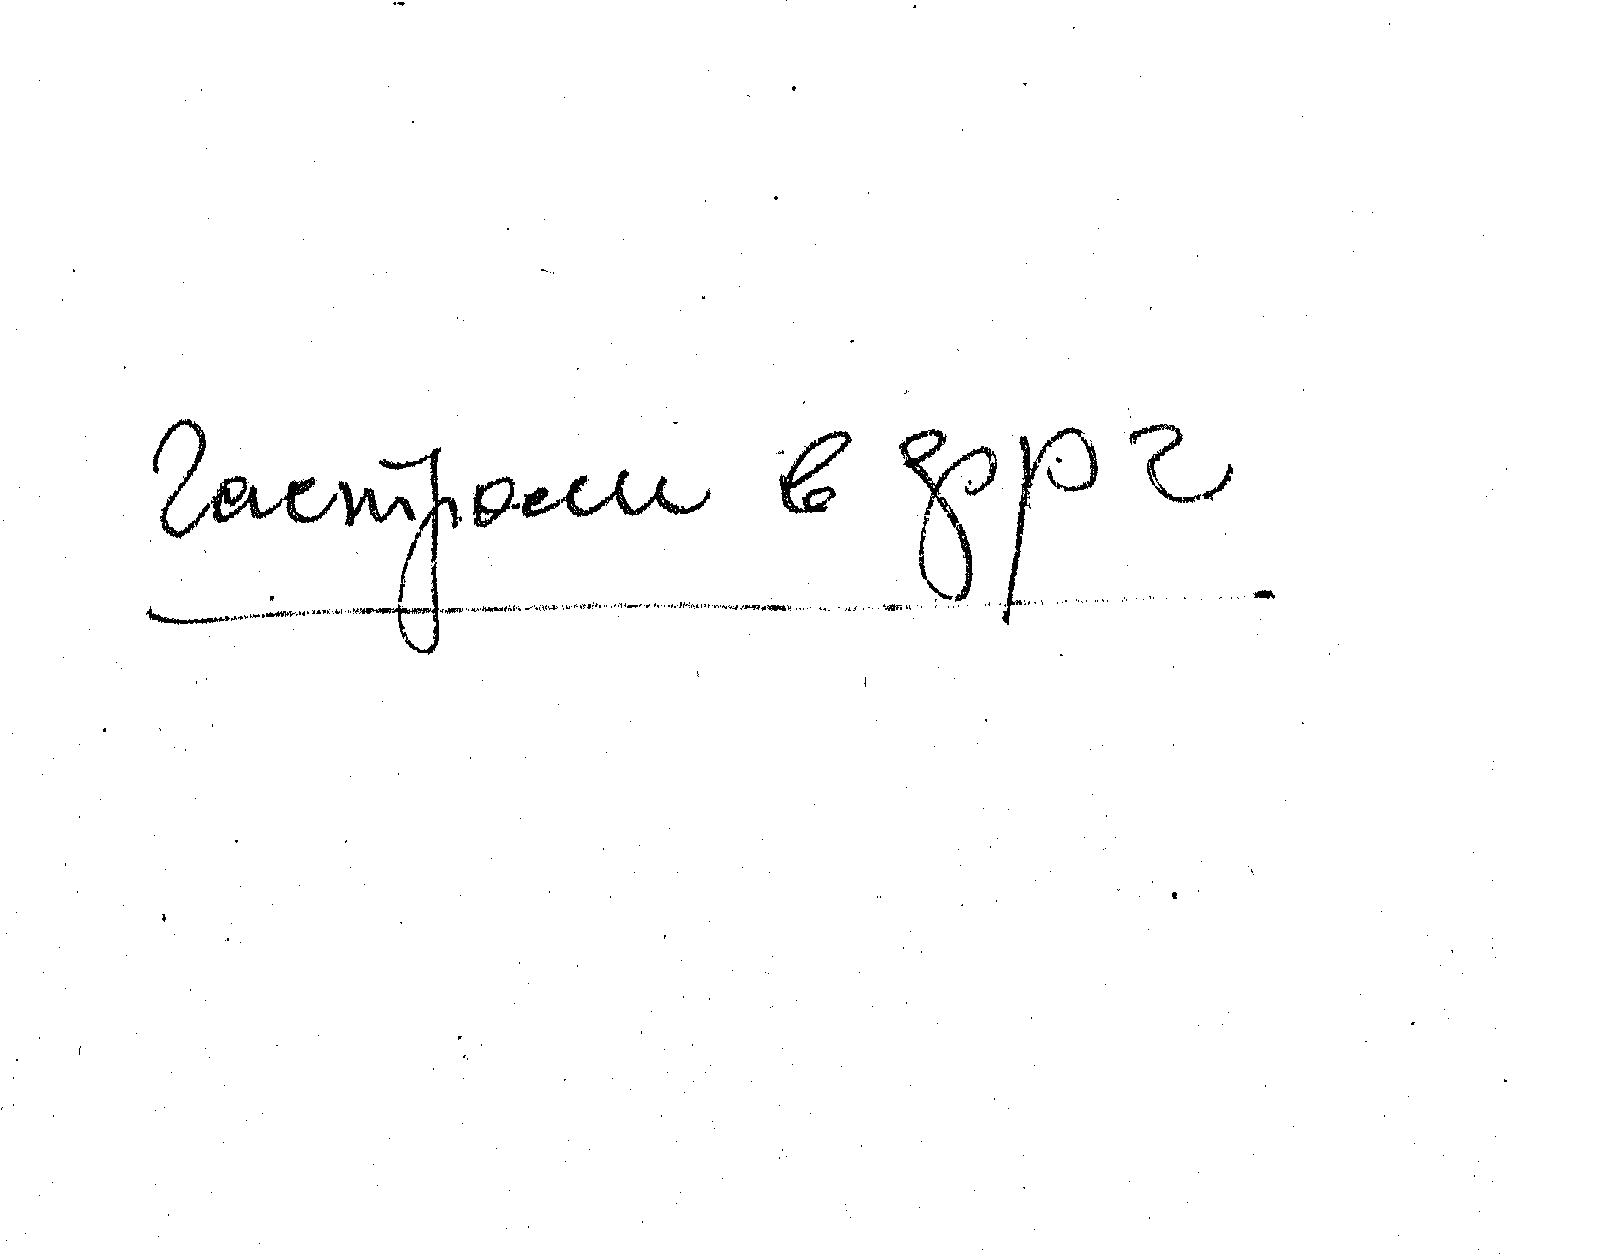 Гастроли в ФРГ